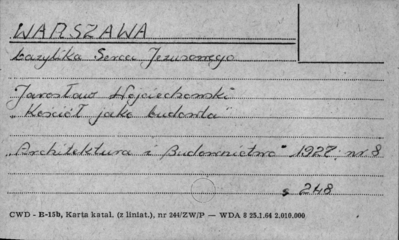 WARSZAWA
bazylika Serca Jezusowego
Jarosław Wojciechowski
"Kościół jako budowla"
"Architektura i Budownictwo" 1927, nr 8
s 248
CWD - E-15b, Karta katal. (z liniat.), nr 244/ZW/P — WDA 8 25.1.64 2.010.000